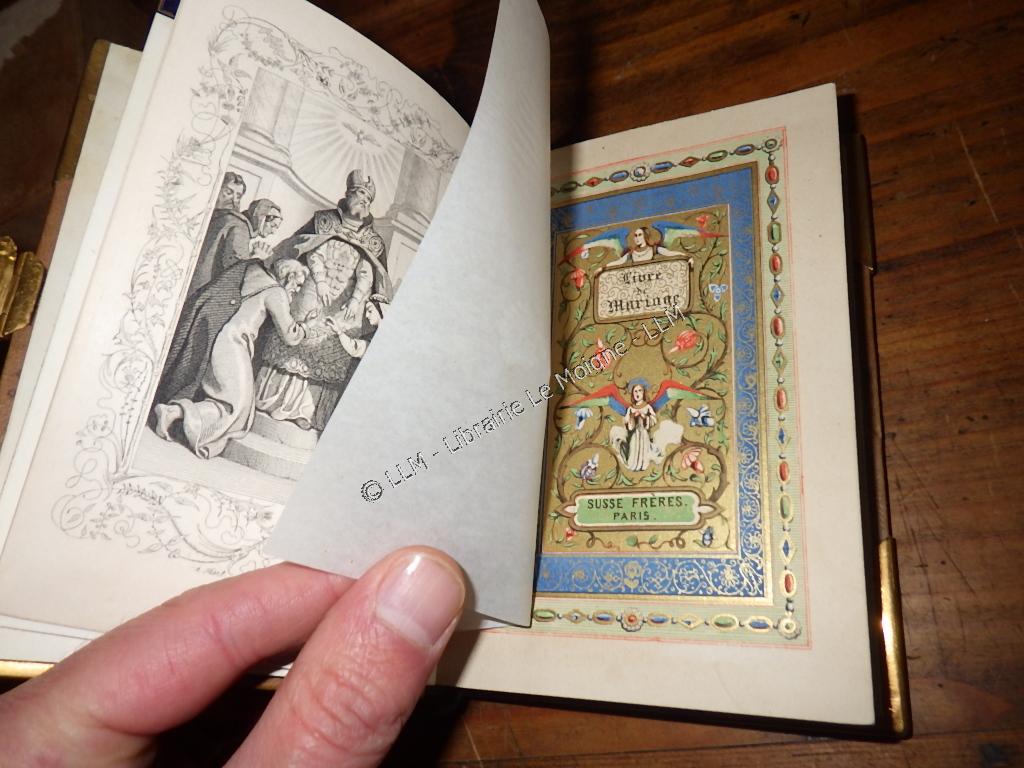 Livre
de
Mariage
SUSSE FRÈRES.
PARIS.
© LLM - Librairie Le Moigne - LLM